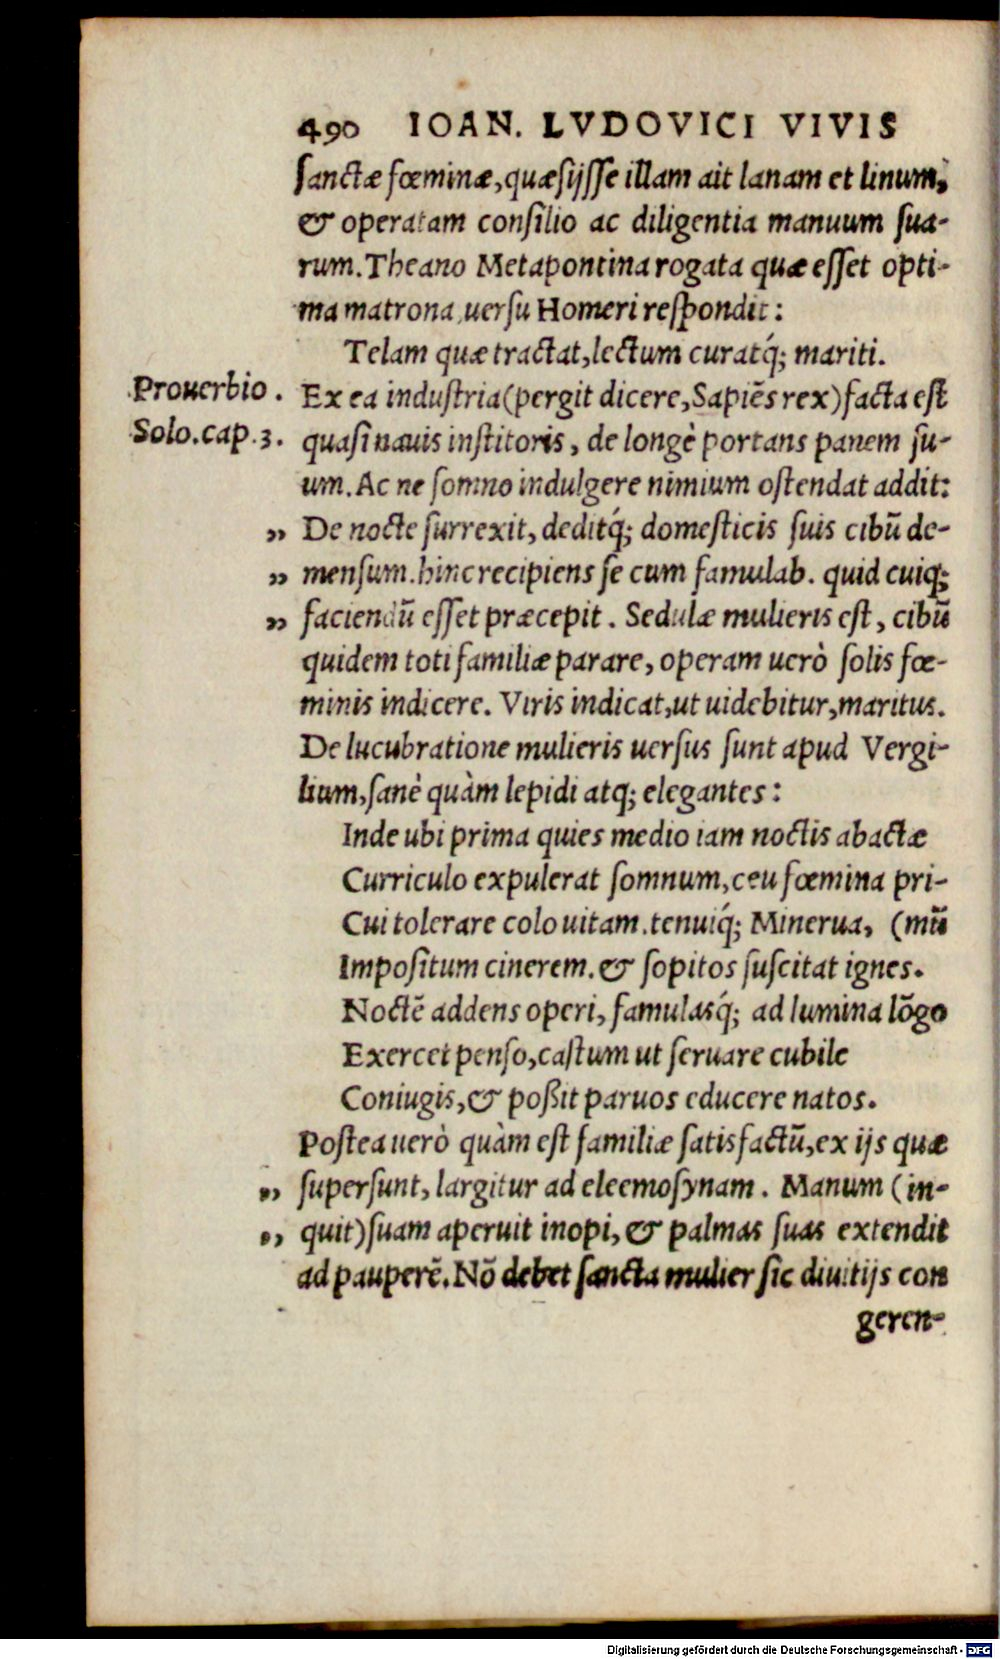 490 IOAN. LVDOVICI VIVIS
sanctæ fœminæ, quæsijsse illam ait lanam et linum,
& operatam consilio ac diligentia manuum sua-
rum. Theano Metapontina rogata quæ esset opti-
ma matrona, uersu Homeri respondit:
Telam quæ tractat, lectum curatq́; mariti.
Prouerbio.
Solo. cap. 3.
Ex ea industria (pergit dicere, Sapiēs rex) facta est
quasi nauis institoris, de longè portans panem su-
um. Ac ne somno indulgere nimium ostendat addit:
„ De nocte surrexit, deditq́; domesticis suis cibū de-
„ mensum. hinc recipiens se cum famulab. quid cuiq;
„ faciendū esset præcepit. Sedulæ mulieris est, cibū
quidem toti familiæ parare, operam uerò solis fœ-
minis indicere. Viris indicat, ut uidebitur, maritus.
De lucubratione mulieris uersus sunt apud Vergi-
lium, sanè quàm lepidi atq; elegantes:
Inde ubi prima quies medio iam noctis abactæ
Curriculo expulerat somnum, ceu fœmina pri-
Cui tolerare colo uitam. tenuiq́; Minerua, (mū
Impositum cinerem. & sopitos suscitat ignes.
Noctē addens operi, famulasq́; ad lumina lōgo
Exercet penso, castum ut seruare cubile
Coniugis, & poßit paruos educere natos.
Postea uerò quàm est familiæ satisfactū, ex ijs quæ
„ supersunt, largitur ad eleemosynam. Manum (in-
„ quit) suam aperuit inopi, & palmas suas extendit
ad pauperē. Nō debet sancta mulier sic diuitijs con
geren-
Digitalisierung gefördert durch die Deutsche Forschungsgemeinschaft - DFG